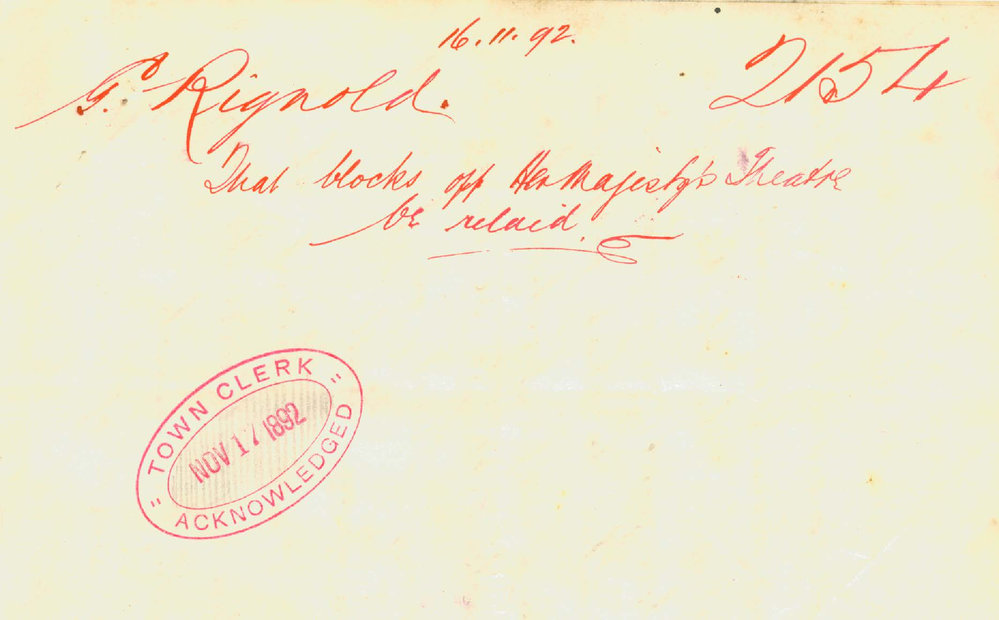 16.11.92.
G. Rignold. 2154
That blocks off Her Majesty's Theatre
be relaid.
" TOWN CLERK "
NOV 17 1892
ACKNOWLEDGED